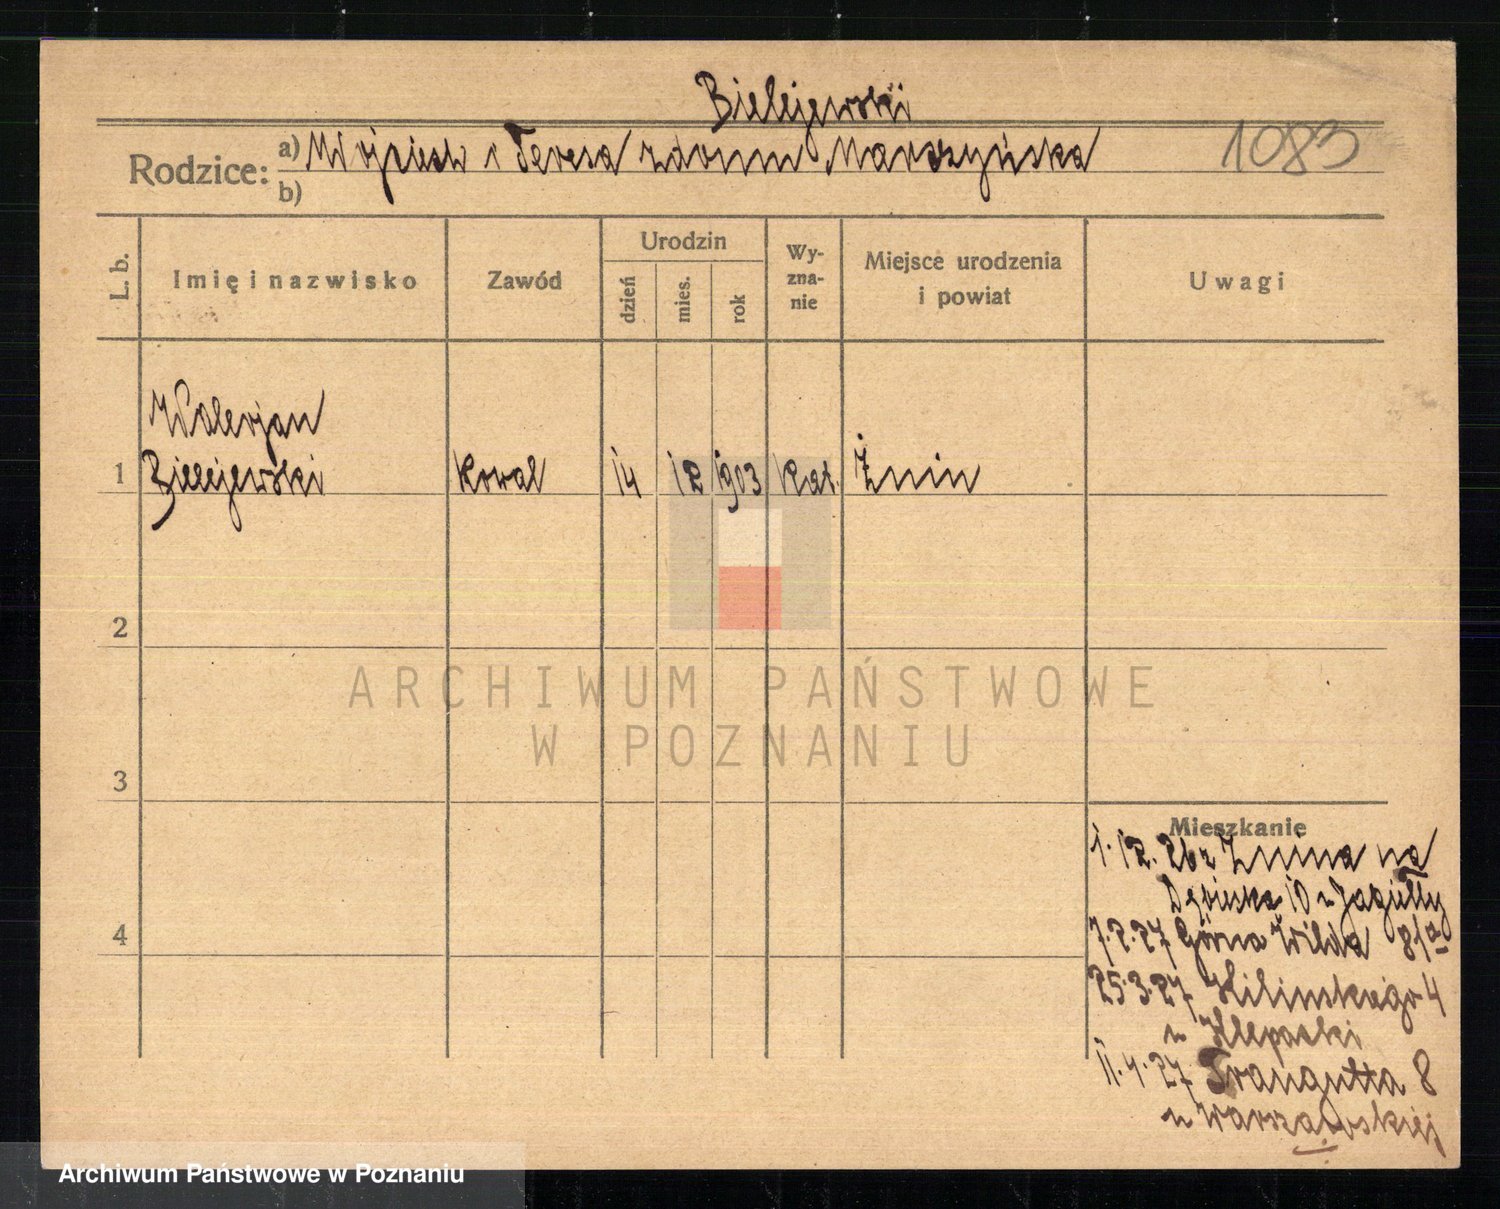 Bielejewski
1083
Rodzice:
a) Wojciech i Teresa zdomu Marszyńska
b)
L. b.
Imię i nazwisko
Zawód
Urodzin
dzień
mies.
rok
Wy-
zna-
nie
Miejsce urodzenia
i powiat
Uwagi
Walerjan
1 Bielejewski Kowal 14 12 1903 Kat. Żnin
2
3
4
ARCHIWUM PAŃSTWOWE
W POZNANIU
Mieszkanie
1.12.26 z Żnina na
Dębinska 10 u Jagiełły
7.2.27 Górna Wilda 81a
25.3.27 Kilinskiego 4
u
11.4.27 Traugutta 8
u Warszawskiej
Archiwum Państwowe w Poznaniu